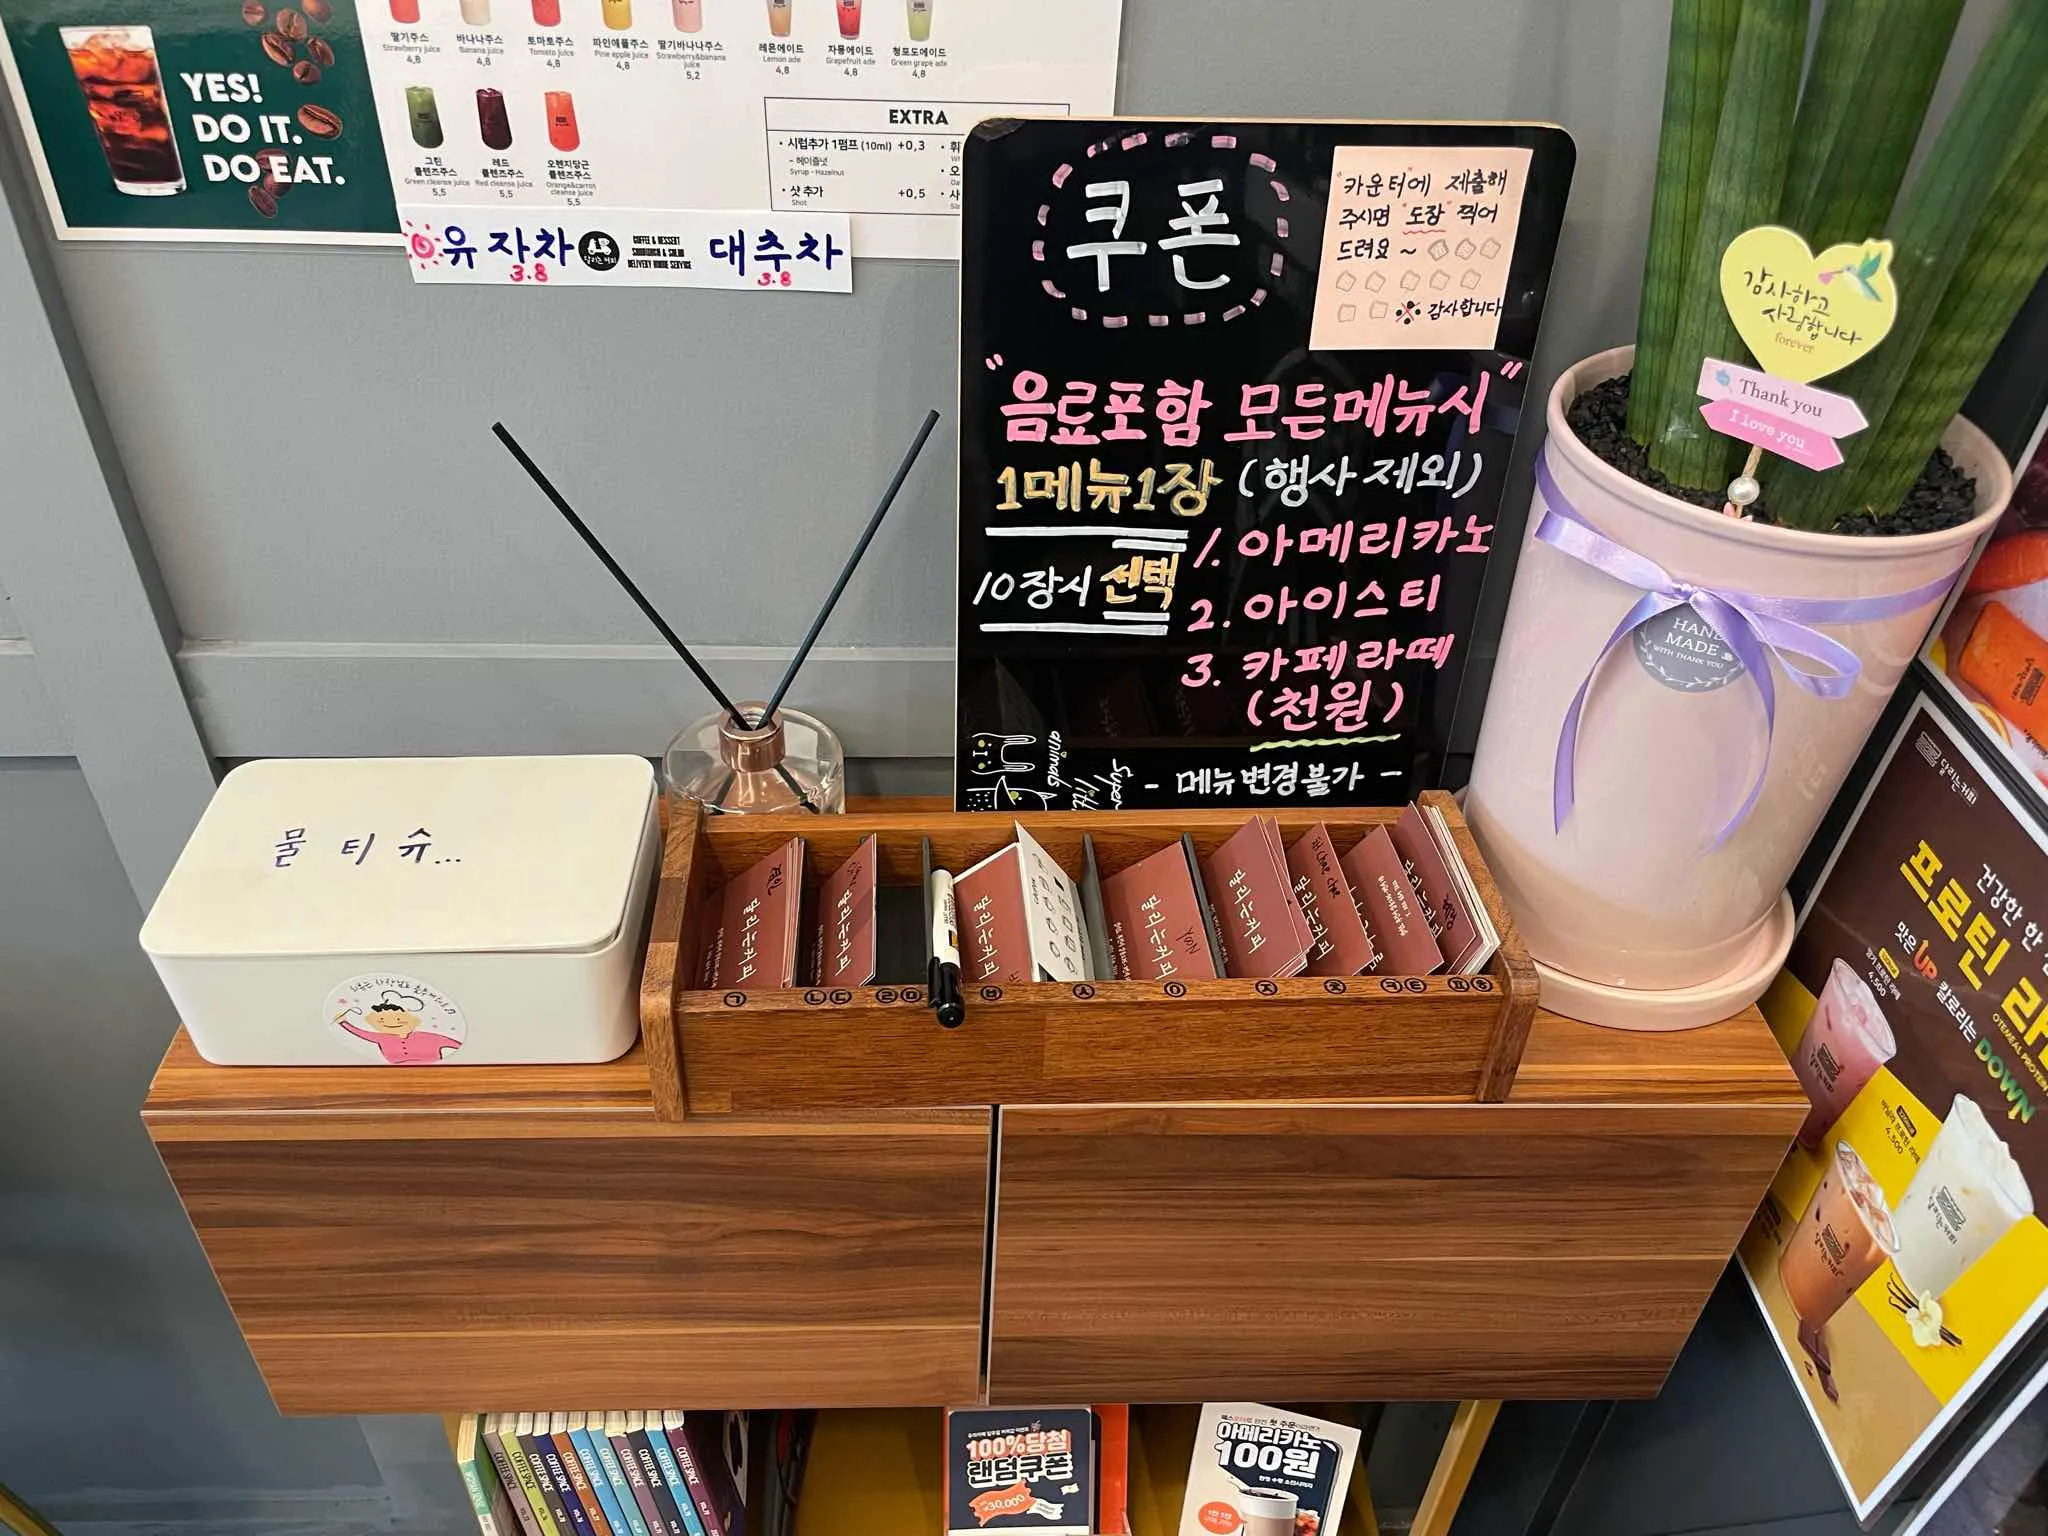 YES!
DO IT.
DO EAT.
딸기주스
Strawberry juice
4,8
바나나주스
Banana juice
4,8
토마토주스
Tomato juice
4,8
파인애플주스
Pine apple juice
4,8
딸기바나나주스
Strawberry&banana
juice
5,2
레몬에이드
Lemon ade
4,8
자몽에이드
Grapefruit ade
4,8
청포도에이드
Green grape ade
4,8
그린
클렌즈주스
Green cleanse juice
5,5
레드
클렌즈주스
Red cleanse juice
5,5
오렌지당근
클렌즈주스
Orange&carrot
cleanse juice
5,5
EXTRA
• 시럽추가 1펌프 (10ml) +0,3
- 헤이즐넛
Syrup - Hazelnut
• 샷 추가 +0,5
Shot
유자차
3.8
달리는커피
COFFEE & DESSERT
SANDWICH & SALAD
DELIVERY HOME SERVICE
대추차
3.8
쿠폰
"카운터에 제출해
주시면 "도장" 찍어
드려요 ~
감사합니다
"음료포함 모든메뉴시"
1메뉴1장 (행사 제외)
10장시 선택
1. 아메리카노
2. 아이스티
3. 카페라떼
(천원)
- 메뉴변경불가 -
animals
Super
감사하고
사랑합니다
forever
Thank you
I love you
HAND
MADE
WITH THANK YOU
물티슈...
달리는커피
달리는커피
달리는커피
달리는커피
YOON
달리는커피
달리는커피
Chae Chae
달리는커피
ㄱ ㄴㄷ ㄹㅁ ㅂ ㅅ ㅇ ㅈ ㅊ ㅋㅌ ㅍㅎ
달리는커피
건강한 한
프로틴 라
맛은 UP 칼로리는 DOWN
4,500
4,500
COFFEE SPACE
COFFEE SPACE
COFFEE SPACE
COFFEE SPACE
COFFEE SPACE
COFFEE SPACE
COFFEE SPACE
COFFEE SPACE
100%당첨
랜덤쿠폰
30,000
첫 주문
아메리카노
100원